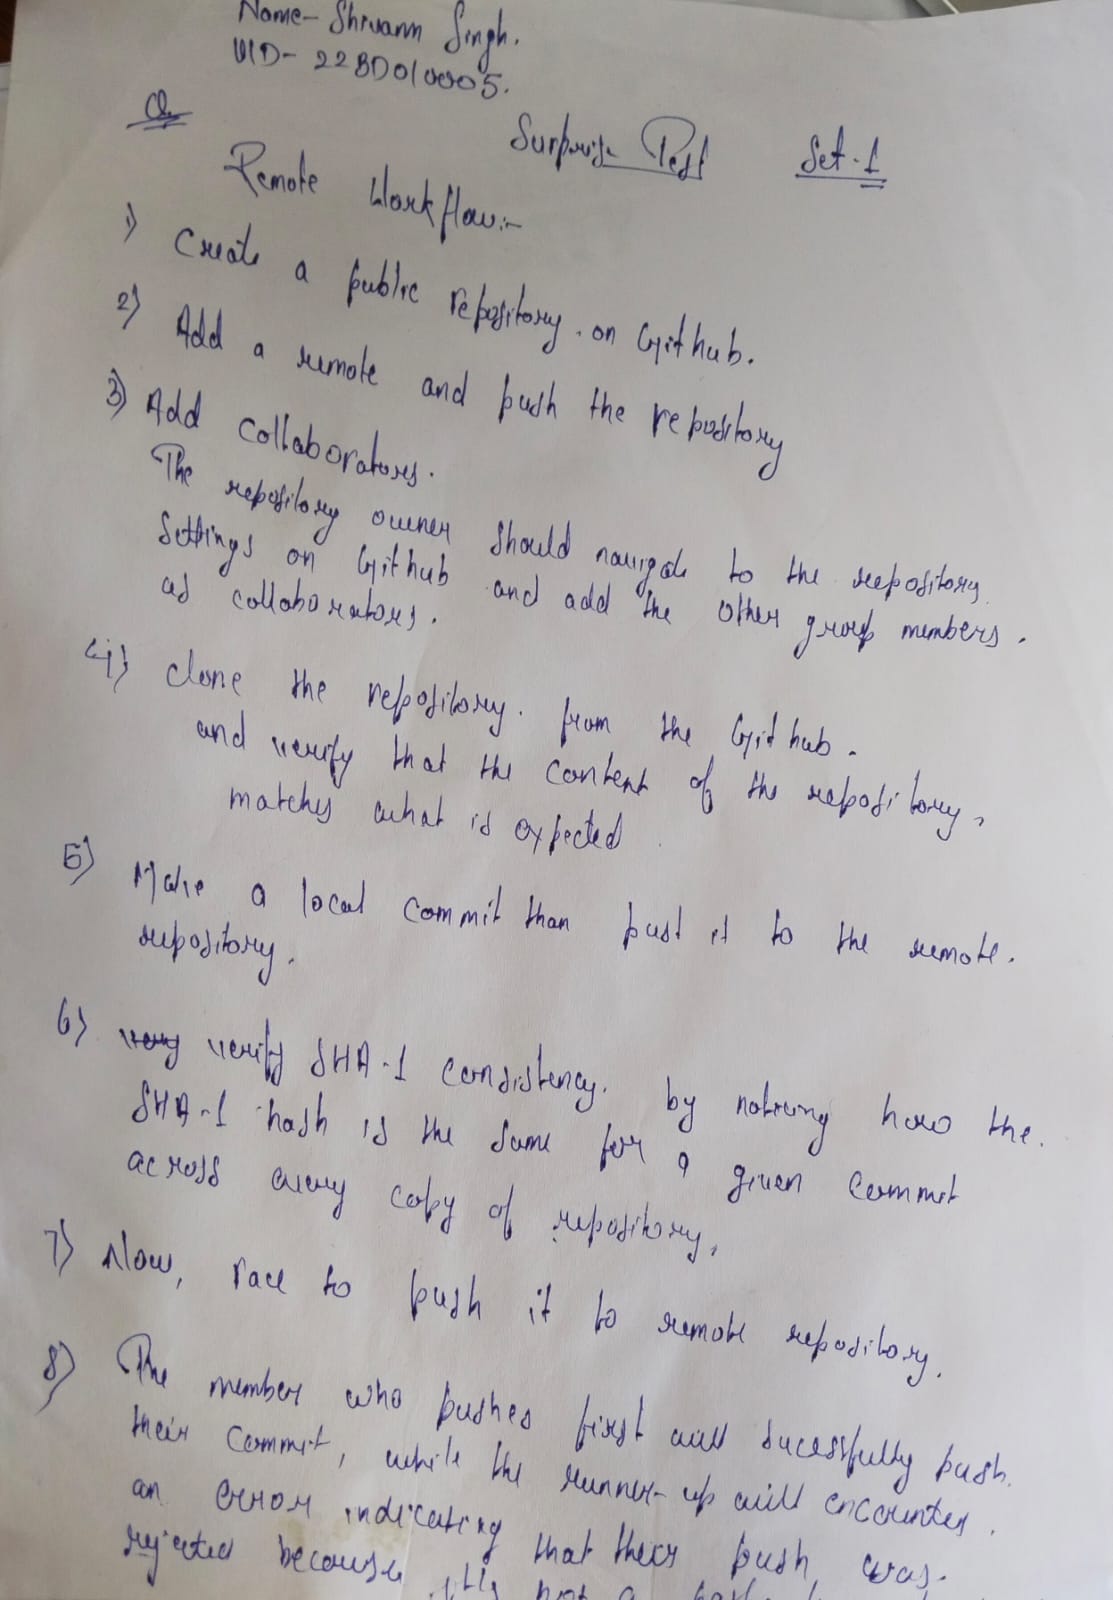 Name- Shivam Singh.
UID- 22BD010005.
Q.
Surprise Test Set-1
Remote Workflow:-
1) Create a public repository on Github.
2) Add a remote and push the repository
3) Add collaborators.
The repository owner should navigate to the repository
Settings on Github and add the other group members.
as collaborators.
4) Clone the repository. from the Github.
and verify that the content of the repository,
matches what is expected.
5) Make a local commit than push it to the remote.
repository.
6) verify SHA-1 consistency. by noticing how the.
SHA-1 hash is the same for a given commit
across every copy of repository,
7) Now, race to push it to remote repository.
8) The member who pushes first will sucessfully push.
their commit, while the runner-up will encounter.
an error indicating that their push was.
rejected because not a